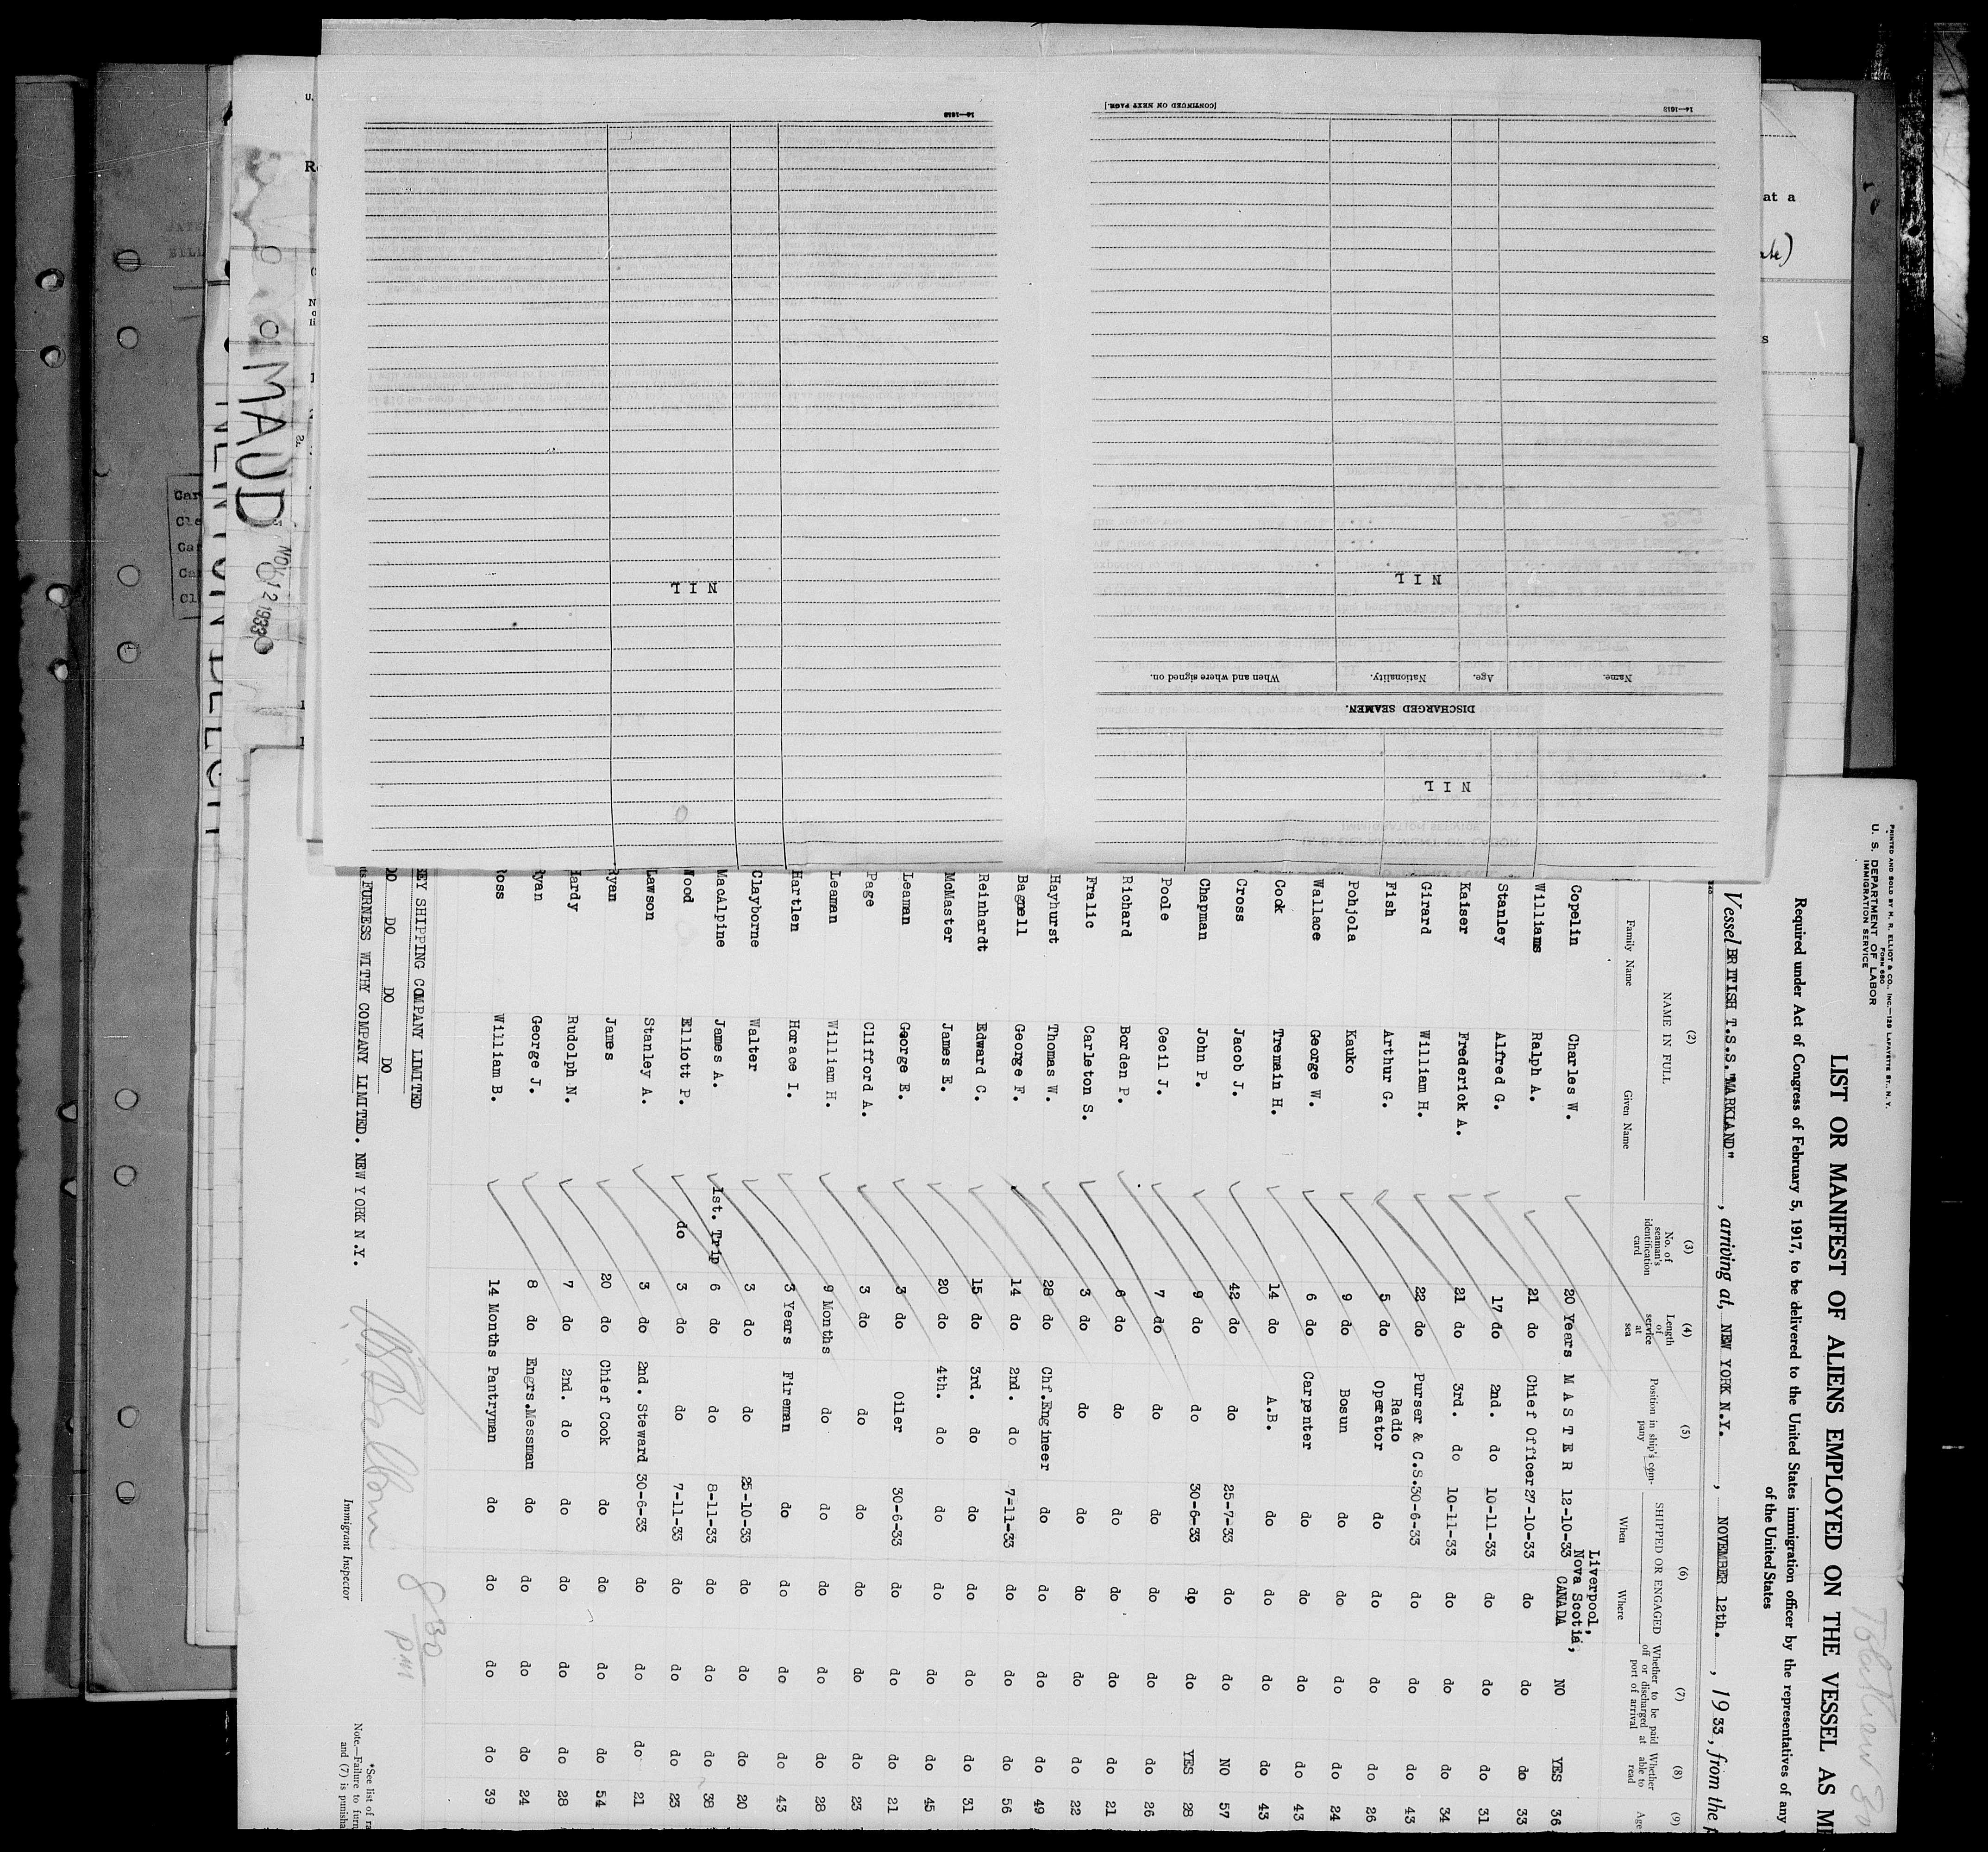 PRINTED AND SOLD BY H. R. ELLIOT & CO., INC.—129 LAFAYETTE ST., N. Y.
FORM 680
U. S. DEPARTMENT OF LABOR
IMMIGRATION SERVICE
LIST OR MANIFEST OF ALIENS EMPLOYED ON THE VESSEL AS ME
Required under Act of Congress of February 5, 1917, to be delivered to the United States immigration officer by the representatives of any v
of the United States
Vessel BRITISH T.S.S."MARKLAND", arriving at, NEW YORK N.Y., NOVEMBER 12th., 1933, from the p
(2) (3) (4) (5) (6) (7) (8) (9)
NAME IN FULL
Family Name Given Name
No. of seaman's identification card
Length of service at sea
Position in ship's company
SHIPPED OR ENGAGED
When Where
Whether to be paid off or discharged at port of arrival
Whether able to read
Age
Liverpool,
Nova Scotia,
Copelin Charles W. 20 Years M A S T E R 12-10-33 CANADA NO YES 36
Williams Ralph A. 21 do Chief Officer 27-10-33 do do do 33
Stanley Alfred G. 17 do 2nd. do 10-11-33 do do do 31
Kaiser Frederick A. 21 do 3rd. do 10-11-33 do do do 34
Girard William H. 22 do Purser & C.S. 30-6-33 do do do 43
Fish Arthur G. 5 do Radio Operator do do do do 26
Pohjola Kauko 9 do Bosun do do do do 24
Wallace George W. 6 do Carpenter do do do do 43
Cook Tremain H. 14 do A.B. do do do do 43
Cross Jacob J. 42 do do 25-7-33 do do NO 57
Chapman John P. 9 do do 30-6-33 dp do YES 28
Poole Cecil J. 7 do do do do do do 26
Richard Borden P. 6 do do do do do do 21
Fralic Carleton S. 3 do do do do do do 22
Hayhurst Thomas W. 28 do Chf.Engineer do do do do 49
Bagnell George F. 14 do 2nd. do 7-11-33 do do do 56
Reinhardt Edward C. 15 do 3rd. do do do do do 31
McMaster James E. 20 do 4th. do do do do do 45
Leaman George E. 3 do Oiler 30-6-33 do do do 21
Page Clifford A. 3 do do do do do do 23
Leaman William H. 9 Months do do do do do 28
Hartlen Horace I. 3 Years Fireman do do do do 43
Clayborne Walter 3 do do 25-10-33 do do do 20
MacAlpine James A. 1st. Trip 6 do do 8-11-33 do do do 38
Wood Elliott P. do 3 do do 7-11-33 do do do 23
Lawson Stanley A. 3 do 2nd. Steward 30-6-33 do do do 21
Ryan James 20 do Chief Cook do do do do 54
Hardy Rudolph N. 7 do 2nd. do do do do do 28
Ryan George J. 8 do Engrs.Messman do do do do 24
Ross William B. 14 Months Pantryman do do do do 39
EY SHIPPING COMPANY LIMITED
DO DO DO DO
FURNESS WITHY COMPANY LIMITED. NEW YORK N.Y.
Immigrant Inspector
8 30 PM
*See list of ra
Note.—Failure to furn
and (7) is punisha
NIL
DISCHARGED SEAMEN.
Name. Age. Nationality. When and where signed on.
NIL
[CONTINUED ON NEXT PAGE.]
14—1618
NIL
14—1618
MAUD
NOV 12 1933
at a